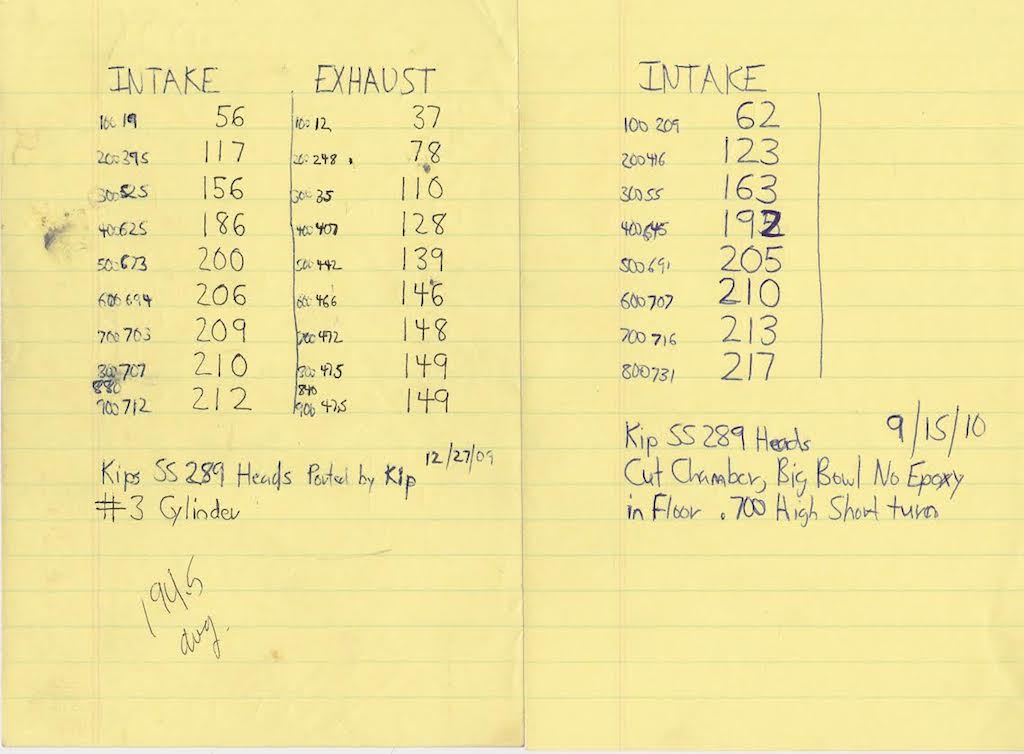 INTAKE EXHAUST
100 19 56 100 12 37
200 395 117 200 248 78
300 525 156 300 35 110
400 625 186 400 407 128
500 673 200 500 442 139
600 694 206 600 466 146
700 703 209 700 472 148
800 707 210 800 475 149
880 840
900 712 212 900 475 149
Kips SS 289 Heads Ported by Kip 12/27/09
#3 Cylinder
194.5
avg.
INTAKE
100 209 62
200 416 123
300 55 163
400 645 192
500 691 205
600 707 210
700 716 213
800 731 217
9/15/10
Kip SS 289 Heads
Cut Chamber, Big Bowl No Epoxy
in Floor .700 High Short turn